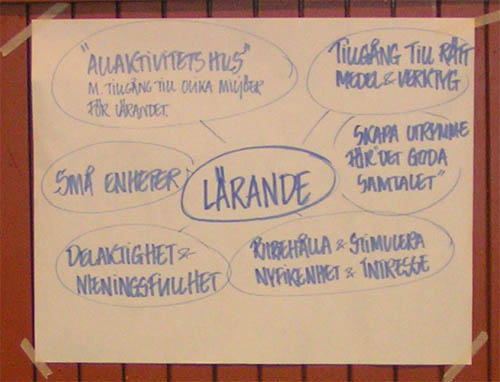 "ALLAKTIVITETSHUS"
M. TILLGÅNG TILL OLIKA MILJÖER
FÖR LÄRANDET.
TILLGÅNG TILL RÄTT
MEDEL & VERKTYG
SKAPA UTRYMME
FÖR "DET GODA
SAMTALET"
SMÅ ENHETER
LÄRANDE
DELAKTIGHET &
MENINGSFULLHET
BIBEHÅLLA & STIMULERA
NYFIKENHET & INTRESSE